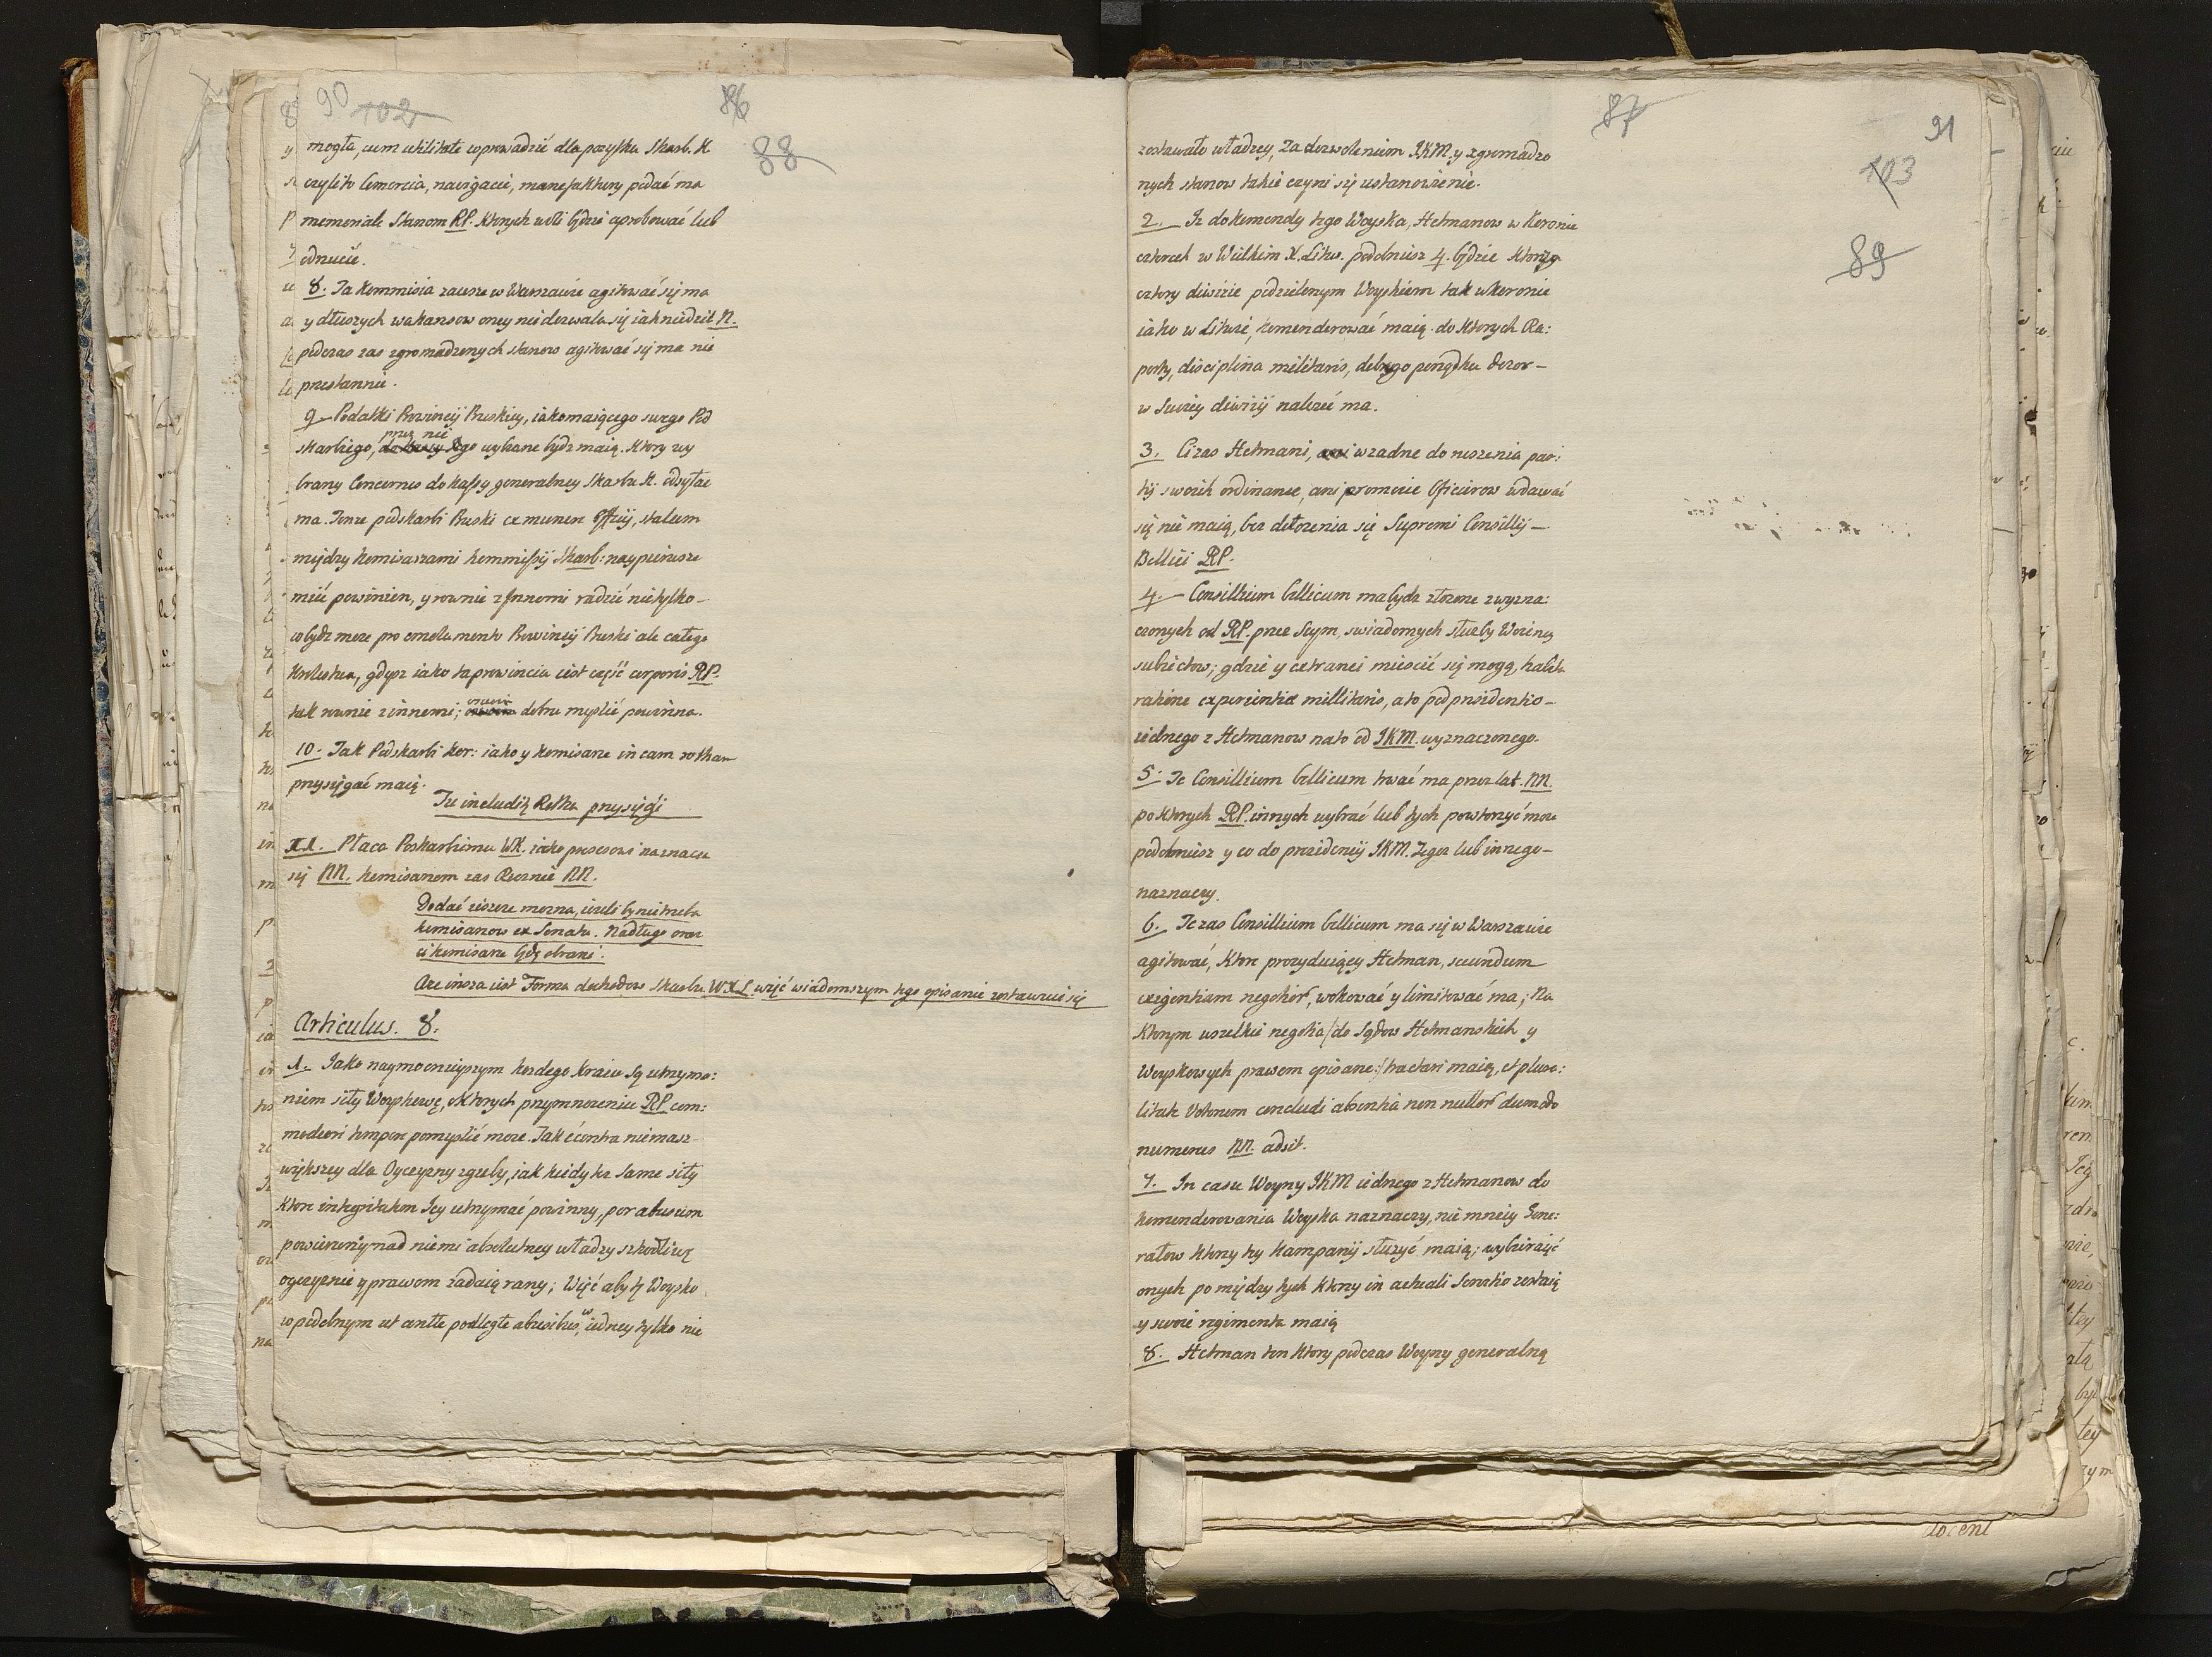 90 102 86
88
mogła, cum utilitate wprowadzić dla pożytku Skarb. K
czyli to Comercia, navigacii, manufaktury podać ma
memoriale Stanom RP. Ktorych woli będzie aprobować lub
odrzucić.
8. Ta Kommisia zawsze w Warszawie agitować się ma
y dłuzszych wakansow oney nie dozwala się iak niedziel N.
podczas zas zgromadzonych stanow agitować się ma nie
przestannie.
9. Podatki Prowincÿ Pruskiey, iako maiącego swego Pod
skarbiego, przez nie go wybrane bydz maią. Ktory wy
brany Concernes do kassy generalney Skarbu K. odsyłac
ma. Tenze podskarbi Pruski ex munere Officÿ, stalum
między Komisarzami kommissÿ Skarb: naypierwsze
mieć powinien, y rownie z Innemi radzić nie tylko
co bydz moze pro emolumento Prowincÿ Pruski ale całego
Krolestwa, gdysz iako ta prowincia iest część corporis RP.
tak rownie z innemi; dobru myslić powinna.
10. Tak Podskarbi kor: iako y komisarze in eam rotham
przysięgać maią.
Tu includi Rotha przysięgi
XI. Płaca Poskarbiemu WK. iako prezesowi naznacza
się NN. komisarzom zas Rocznie NN.
Dodać ieszcze mozna, iezeli by nie trzeba
komisarzow ex Senatu. Nadługo oraz
ci komisarze będą obrani.
Aze insza iest Forma dochodow skarbu W.X.L. więć wiadomszym tego opisanie zostawuie się
Articulus. 8.
1. Jako naymocnieyszym kazdego kraiu są utrzyma:
niem siły Woyskowe, o Ktorych przymnozeniu RP com:
modiori tempore pomyslić moze. Tak é contra niemasz
większey dla Oyczyzny zguby, iak kiedy te same siły
Ktore integritatem Jey utrzymać powinny, per abusum
powierzony nad niemi absolutney władzy szkodliwe
oyczyznie y prawom zadaią rany; Więć aby ty Woysko
w podobnym ut ante podległe abusibus, w iedney tylko nie
87 91
103
89
zostawało władzy, za dozwoleniem JKM. y zgromadzo
nych stanow takie czyni się ustanowienie.
2. Iz do komendy tego Woyska, Hetmanow w Koronie
czterech w Wielkim X. Litw. podobniesz 4. będzie Ktorzy
cztery diwizie podzielonym Woyskiem tak w Koronie
iako w Litwie, komenderować maią. do Ktorych Ra:
porty, disciplina militaris, dobrego porządku dozor
w swoiey diwizÿ nalezeć ma.
3. Ci zas Hetmani, w zadne do noszenia par:
tÿ swoich ordinanse, ani promocie Oficierow wdawać
się nie maią, bez dołozenia się Supremi Consillÿ
Bellici RP.
4. Consillium bellicum ma bydz złozone z wyzna:
czonych od RP. przez Seym, swiadomych słuzby Woienney
subiectow; gdzie y extranei miescić się mogą, habita
ratione experientiæ millitaris, a to pod prezidentio
iednego z Hetmanow na to od JKM. wyznaczonego.
5. Te Consillium bellicum trwać ma przez lat. NN.
po Ktorych RP. innych wybrać lub tych powtorzyć moze
podobniesz y co do prezidencÿ JKM. Tegoz lub innego
naznaczy.
6. Te zas Consillium bellicum ma się w Warszawie
agitować, Ktore prezyduiący Hetman, secundum
exigentiam negotior, wokować y limitować ma; Na
Ktorym wszelkie negotia /do Sądow Hetmanskich y
Woyskowych prawem opisane:/ tractari maią, et plura:
litate Votorum concludi absentia non nullor dummodo
numerus NN. adsit.
7. In casu Woyny JKM iednego z Hetmanow do
komenderowania Woyska naznaczy, nie mniey Gene:
rałow ktorzy tey kampanÿ słuzyć maią; wybieraiąć
onych pomiędzy tych ktorzy in actuali Servitio zostaią
y swoie regimenta maią
8. Hetman ten Ktory podczas Woyny generalną